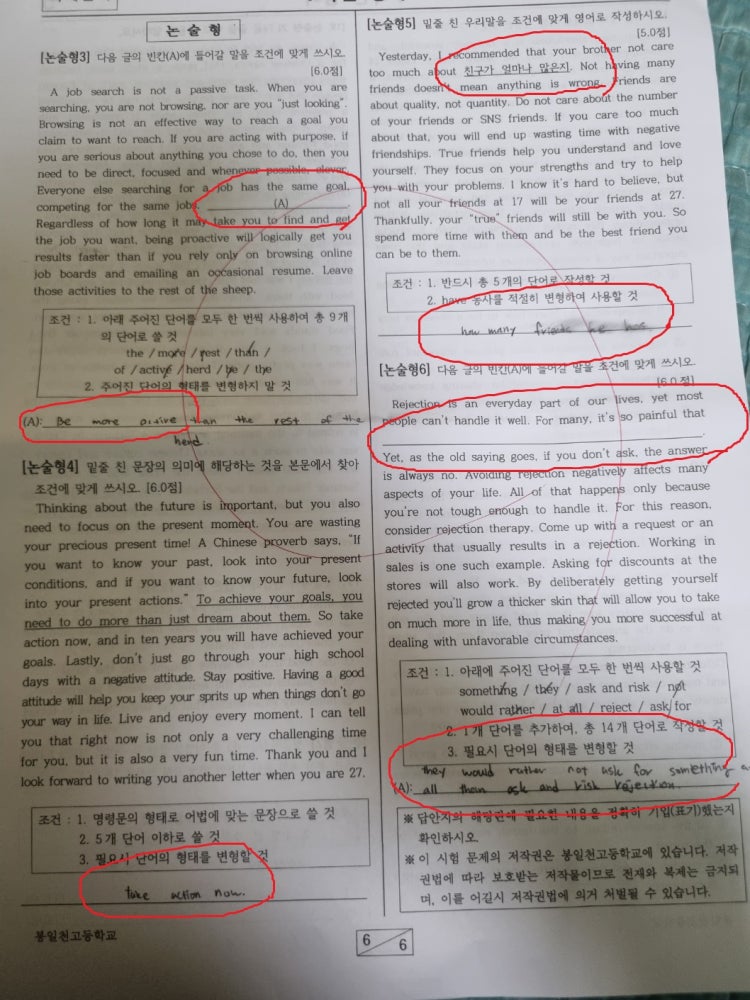 논 술 형
[논술형3] 다음 글의 빈칸(A)에 들어갈 말을 조건에 맞게 쓰시오.
[6.0점]
A job search is not a passive task. When you are
searching, you are not browsing, nor are you "just looking".
Browsing is not an effective way to reach a goal you
claim to want to reach. If you are acting with purpose, if
you are serious about anything you chose to do, then you
need to be direct, focused and whenever possible, clever.
Everyone else searching for a job has the same goal,
competing for the same jobs. (A) .
Regardless of how long it may take you to find and get
the job you want, being proactive will logically get you
results faster than if you rely only on browsing online
job boards and emailing an occasional resume. Leave
those activities to the rest of the sheep.
조건 : 1. 아래 주어진 단어를 모두 한 번씩 사용하여 총 9개
의 단어로 쓸 것
the / more / rest / than /
of / active / herd / be / the
2. 주어진 단어의 형태를 변형하지 말 것
(A): Be more than the rest of the
herd
[논술형4] 밑줄 친 문장의 의미에 해당하는 것을 본문에서 찾아
조건에 맞게 쓰시오. [6.0점]
Thinking about the future is important, but you also
need to focus on the present moment. You are wasting
your precious present time! A Chinese proverb says, "If
you want to know your past, look into your present
conditions, and if you want to know your future, look
into your present actions." To achieve your goals, you
need to do more than just dream about them. So take
action now, and in ten years you will have achieved your
goals. Lastly, don't just go through your high school
days with a negative attitude. Stay positive. Having a good
attitude will help you keep your sprits up when things don't go
your way in life. Live and enjoy every moment. I can tell
you that right now is not only a very challenging time
for you, but it is also a very fun time. Thank you and I
look forward to writing you another letter when you are 27.
조건 : 1. 명령문의 형태로 어법에 맞는 문장으로 쓸 것
2. 5개 단어 이하로 쓸 것
3. 필요시 단어의 형태를 변형할 것
take action now.
봉일천고등학교
[논술형5] 밑줄 친 우리말을 조건에 맞게 영어로 작성하시오.
[5.0점]
Yesterday, I recommended that your brother not care
too much about 친구가 얼마나 많은지. Not having many
friends doesn't mean anything is wrong. Friends are
about quality, not quantity. Do not care about the number
of your friends or SNS friends. If you care too much
about that, you will end up wasting time with negative
friendships. True friends help you understand and love
yourself. They focus on your strengths and try to help
you with your problems. I know it's hard to believe, but
not all your friends at 17 will be your friends at 27.
Thankfully, your "true" friends will still be with you. So
spend more time with them and be the best friend you
can be to them.
조건 : 1. 반드시 총 5개의 단어로 작성할 것
2. have 동사를 적절히 변형하여 사용할 것
how many friends he has
[논술형6] 다음 글의 빈칸(A)에 들어갈 말을 조건에 맞게 쓰시오.
[6.0점]
Rejection is an everyday part of our lives, yet most
people can't handle it well. For many, it's so painful that
.
Yet, as the old saying goes, if you don't ask, the answer
is always no. Avoiding rejection negatively affects many
aspects of your life. All of that happens only because
you're not tough enough to handle it. For this reason,
consider rejection therapy. Come up with a request or an
activity that usually results in a rejection. Working in
sales is one such example. Asking for discounts at the
stores will also work. By deliberately getting yourself
rejected you'll grow a thicker skin that will allow you to take
on much more in life, thus making you more successful at
dealing with unfavorable circumstances.
조건 : 1. 아래에 주어진 단어를 모두 한 번씩 사용할 것
something / they / ask and risk / not
would rather / at all / reject / ask for
2. 1개 단어를 추가하여, 총 14개 단어로 작성할 것
3. 필요시 단어의 형태를 변형할 것
they would rather not ask for something a
(A): all than ask and risk rejection.
※ 답안지의 해당란에 필요한 내용을 정확히 기입(표기)했는지
확인하시오.
※ 이 시험 문제의 저작권은 봉일천고등학교에 있습니다. 저작
권법에 따라 보호받는 저작물이므로 전재와 복제는 금지되
며, 이를 어길시 저작권법에 의거 처벌될 수 있습니다.
6 6